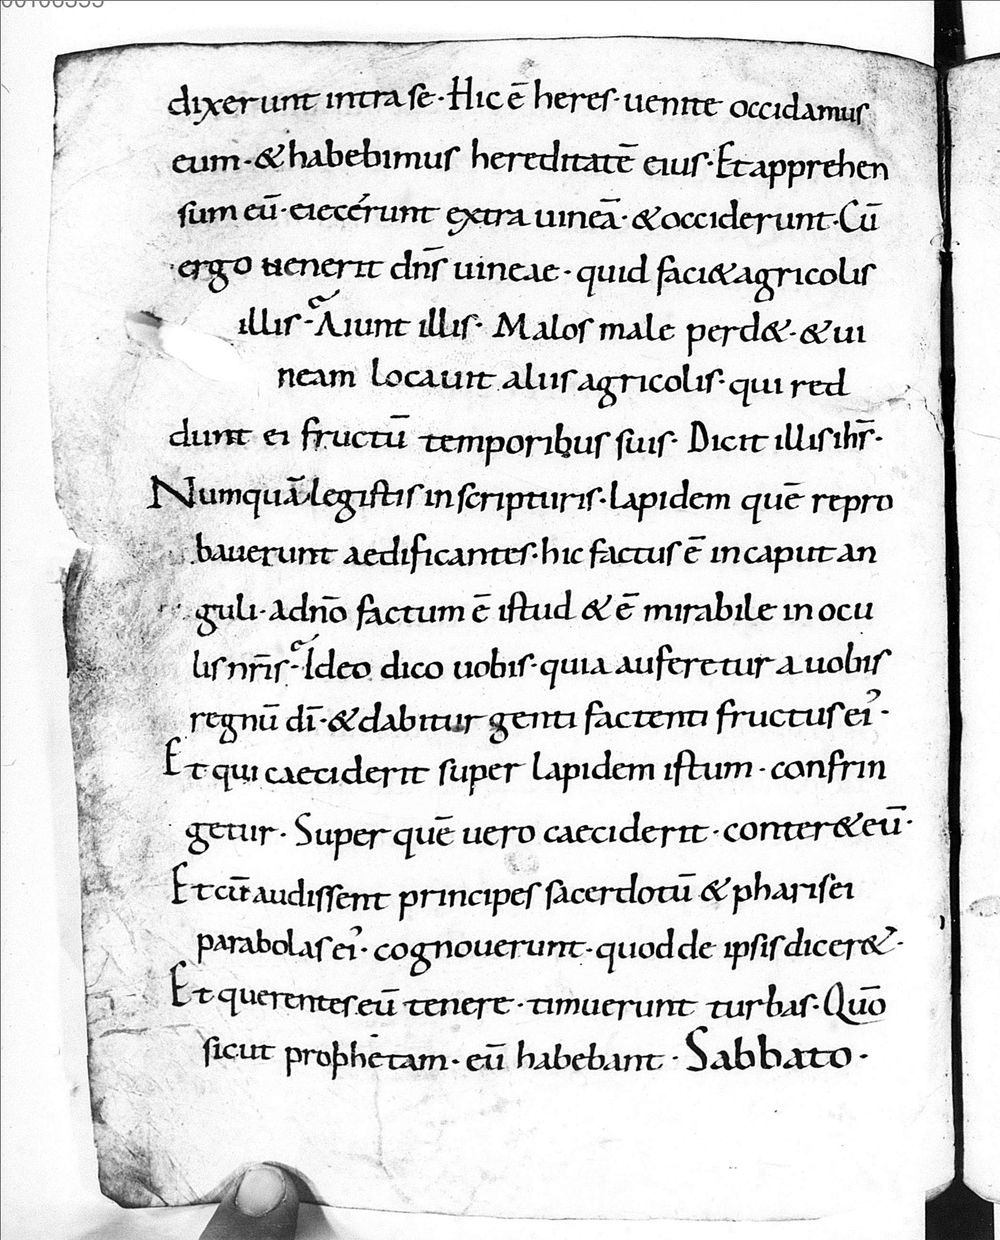 00106555
dixerunt intra se · Hic ē heres · uenite occidamus
eum · & habebimus hereditatē eius · Et apprehen
sum eū · eiecérunt extra uineā · & occiderunt · Cū
ergo uenerit dn̄s uineae · quid faci& agricolis
illis · Aiunt illis · Malos male perd& · & ui
neam locauit aliis agricolis · qui red
dunt ei fructū temporibus suis · Dicit illis ih̄s ·
Numquā legistis in scripturis · lapidem quē repro
bauerunt aedificantes · hic factus ē in caput an
guli · a dn̄o factum ē istud & ē mirabile in ocu
lis nr̄is · Ideo dico uobis · quia auferetur a uobis
regnū dī · & dabitur genti facienti fructus ei᾽ ·
Et qui caeciderit super lapidem istum · confrin
getur · Super quē uero caeciderit · conter& eū ·
Et cū audissent principes sacerdotū & pharisei
parabolas ei᾽ · cognouerunt · quod de ipsis dicer& ·
Et querentes eū tenere · timuerunt turbas · Quō
sicut prophetam · eū habebant · Sabbato ·